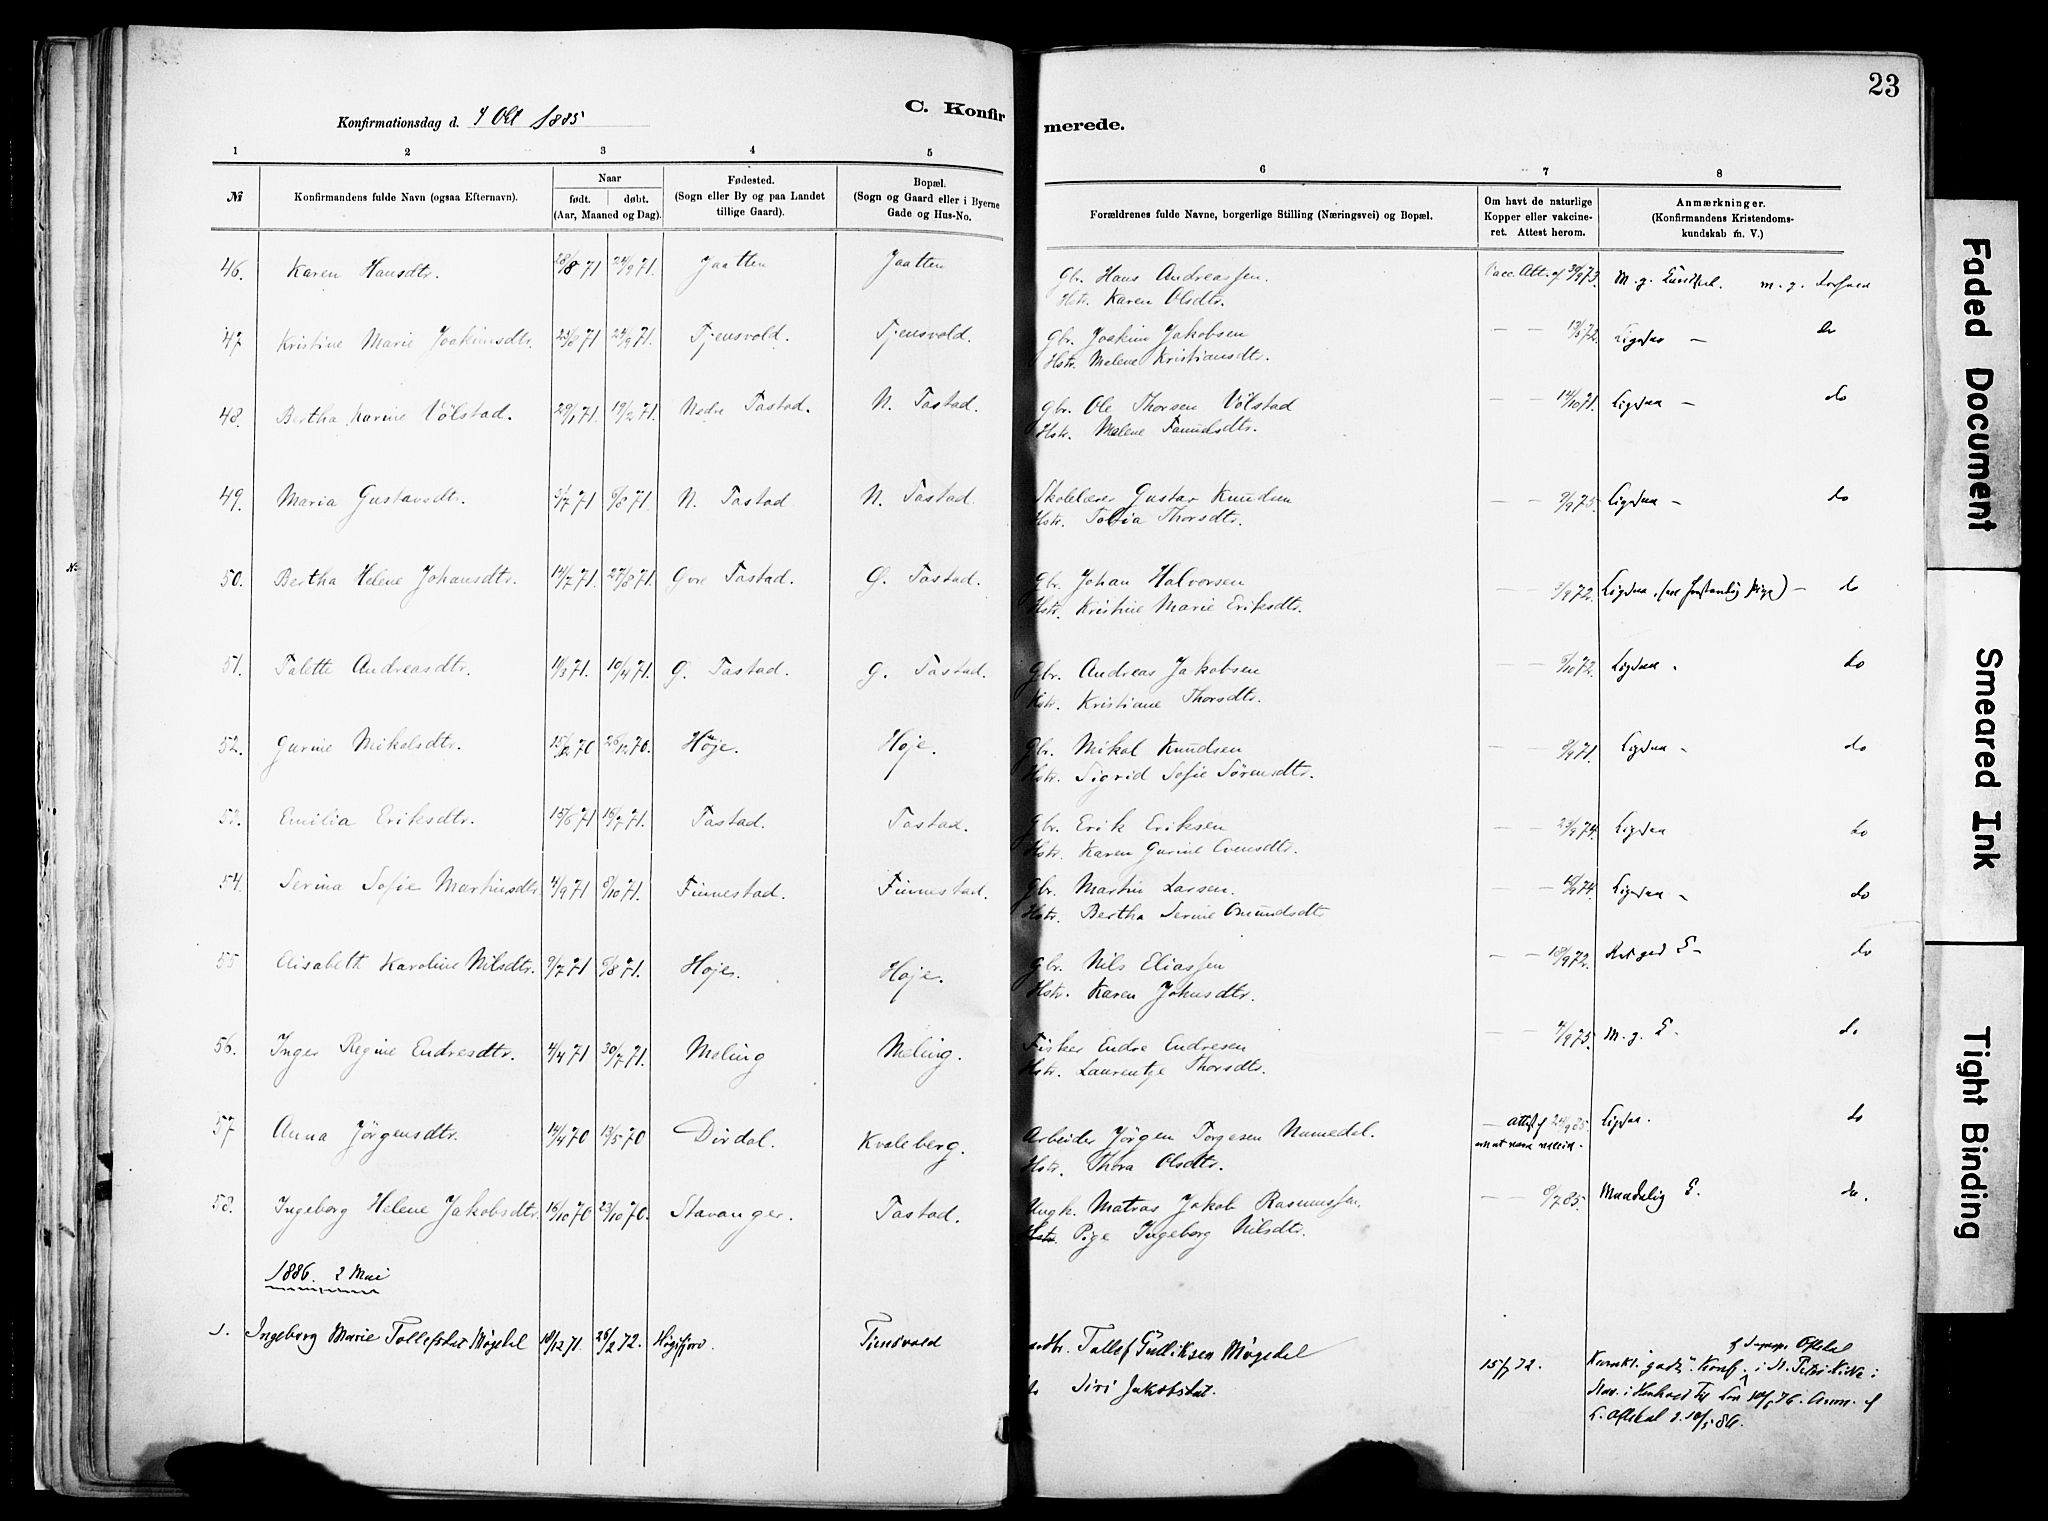 23
C. Konfirmerede.
Konfirmationsdag d. 4 Okt 1885
1 2 3 4 5 6 7 8
№ Konfirmandens fulde Navn (ogsaa Efternavn). Naar født. døbt. (Aar, Maaned og Dag). Fødested. (Sogn eller By og paa Landet tillige Gaard). Bopæl. (Sogn og Gaard eller i Byerne Gade og Hus-No. Forældrenes fulde Navne, borgerlige Stilling (Næringsvei) og Bopæl. Om havt de naturlige Kopper eller vakcineret. Attest herom. Anmærkninger. (Konfirmandens Kristendomskundskab m. V.)
46. Karen Hansdtr. 28/8 71 24/9 71. Jaatten Jaatten Gbr. Hans Andreassen. Vacc. Att. af 30/9 73. M. g. m. g.
Hstr. Karen Olsdtr.
47 Kristine Marie Joakimsdtr. 25/8 71 24/9 71. Tjensvold. Tjensvold. Gbr. Joakim Jakobsen — — 13/5 72. Ligesaa — do
Hstr. Malene Kristiansdtr.
48. Bertha Karine Völstad. 29/1 71 19/2 71. Nedre Tastad. N. Tastad. Gbr. Ole Thorsen Völstad — — 14/10 71. Ligesaa — do
Hstr. Malene
49. Maria Gustavsdtr. 5/7 71 6/8 71. N. Tastad N. Tastad. Skolelærer Gustav Knudsen — — 9/9 75. Ligesaa — do
Hstr. Thorsdtr.
50. Bertha Helene Johansdtr. 14/7 71. 27/8 71. Øvre Tastad. Ø. Tastad. Gbr. Johan Halvorsen — — 3/9 72. Ligesaa, — do
Hstr. Kristine Marie Eriksdtr.
51. Talette Andreasdtr. 11/3 71. 10/4 71. Ø. Tastad. Ø. Tastad. Gbr. Andreas Jakobsen — — 5/10 72. Ligesaa - do
Hstr. Kristiane Thorsdtr.
52. Gurine Mikalsdtr. 15/12 70 26/12 70. Høje. Høje. Gbr. Mikal Knudsen — — 9/9 71. Ligesaa - do
Hstr. Sigrid Sofie Sørensdtr.
53. Emilia Eriksdtr. 15/6 71 16/7 71. Tastad. Tastad. Gbr. Erik Eriksen — — 23/9 74. Ligesaa do
Hstr. Karen Gurine
54. Serina Sofie Martinsdtr. 4/9 71 8/10 71. Finnestad. Finnestad. Gbr. Martin Larsen. — — 74. Ligesaa - do
Hstr. Bertha Serine Omundsdtr
55 Elisabeth Karoline Nilsdtr. 9/7 71 6/8 71. Høje. Høje. Gbr. Nils Eliassen — — 18/9 72. do
Hstr. Karen Johnsdtr.
56. Inger Regine Endresdtr. 4/4 71 30/7 71. Meling Meling. Fisker Endre Endresen — — 4/9 75. M. g. do
Hstr. Laurentje Thorsdtr.
57. Anna Jörgensdtr. 14/4 70 13/5 70 Dirdal. Kvaleberg. Arbeider Jörgen Torgesen — Attest af 24/9 85. Ligesaa. do
Hstr. Thora Olsdtr.
58. Ingeborg Helene Jakobsdtr. 16/10 70 23/10 70. Stavanger. Tastad. Ungk. Matros Jakob Rasmussen. — — 8/7 85. Maadelig do.
Hstr. Pige Ingeborg Nilsdtr.
1886. 2 Mai
1. Ingeborg Marie Tollefsdat Møgedal 18/12 71. 25/2 72. Høgsfjord. Tjensvold Tollef Gulliksen Møgedal 15/7 72.
Siri Jakobsdat.
Faded Document
Smeared Ink
Tight Binding